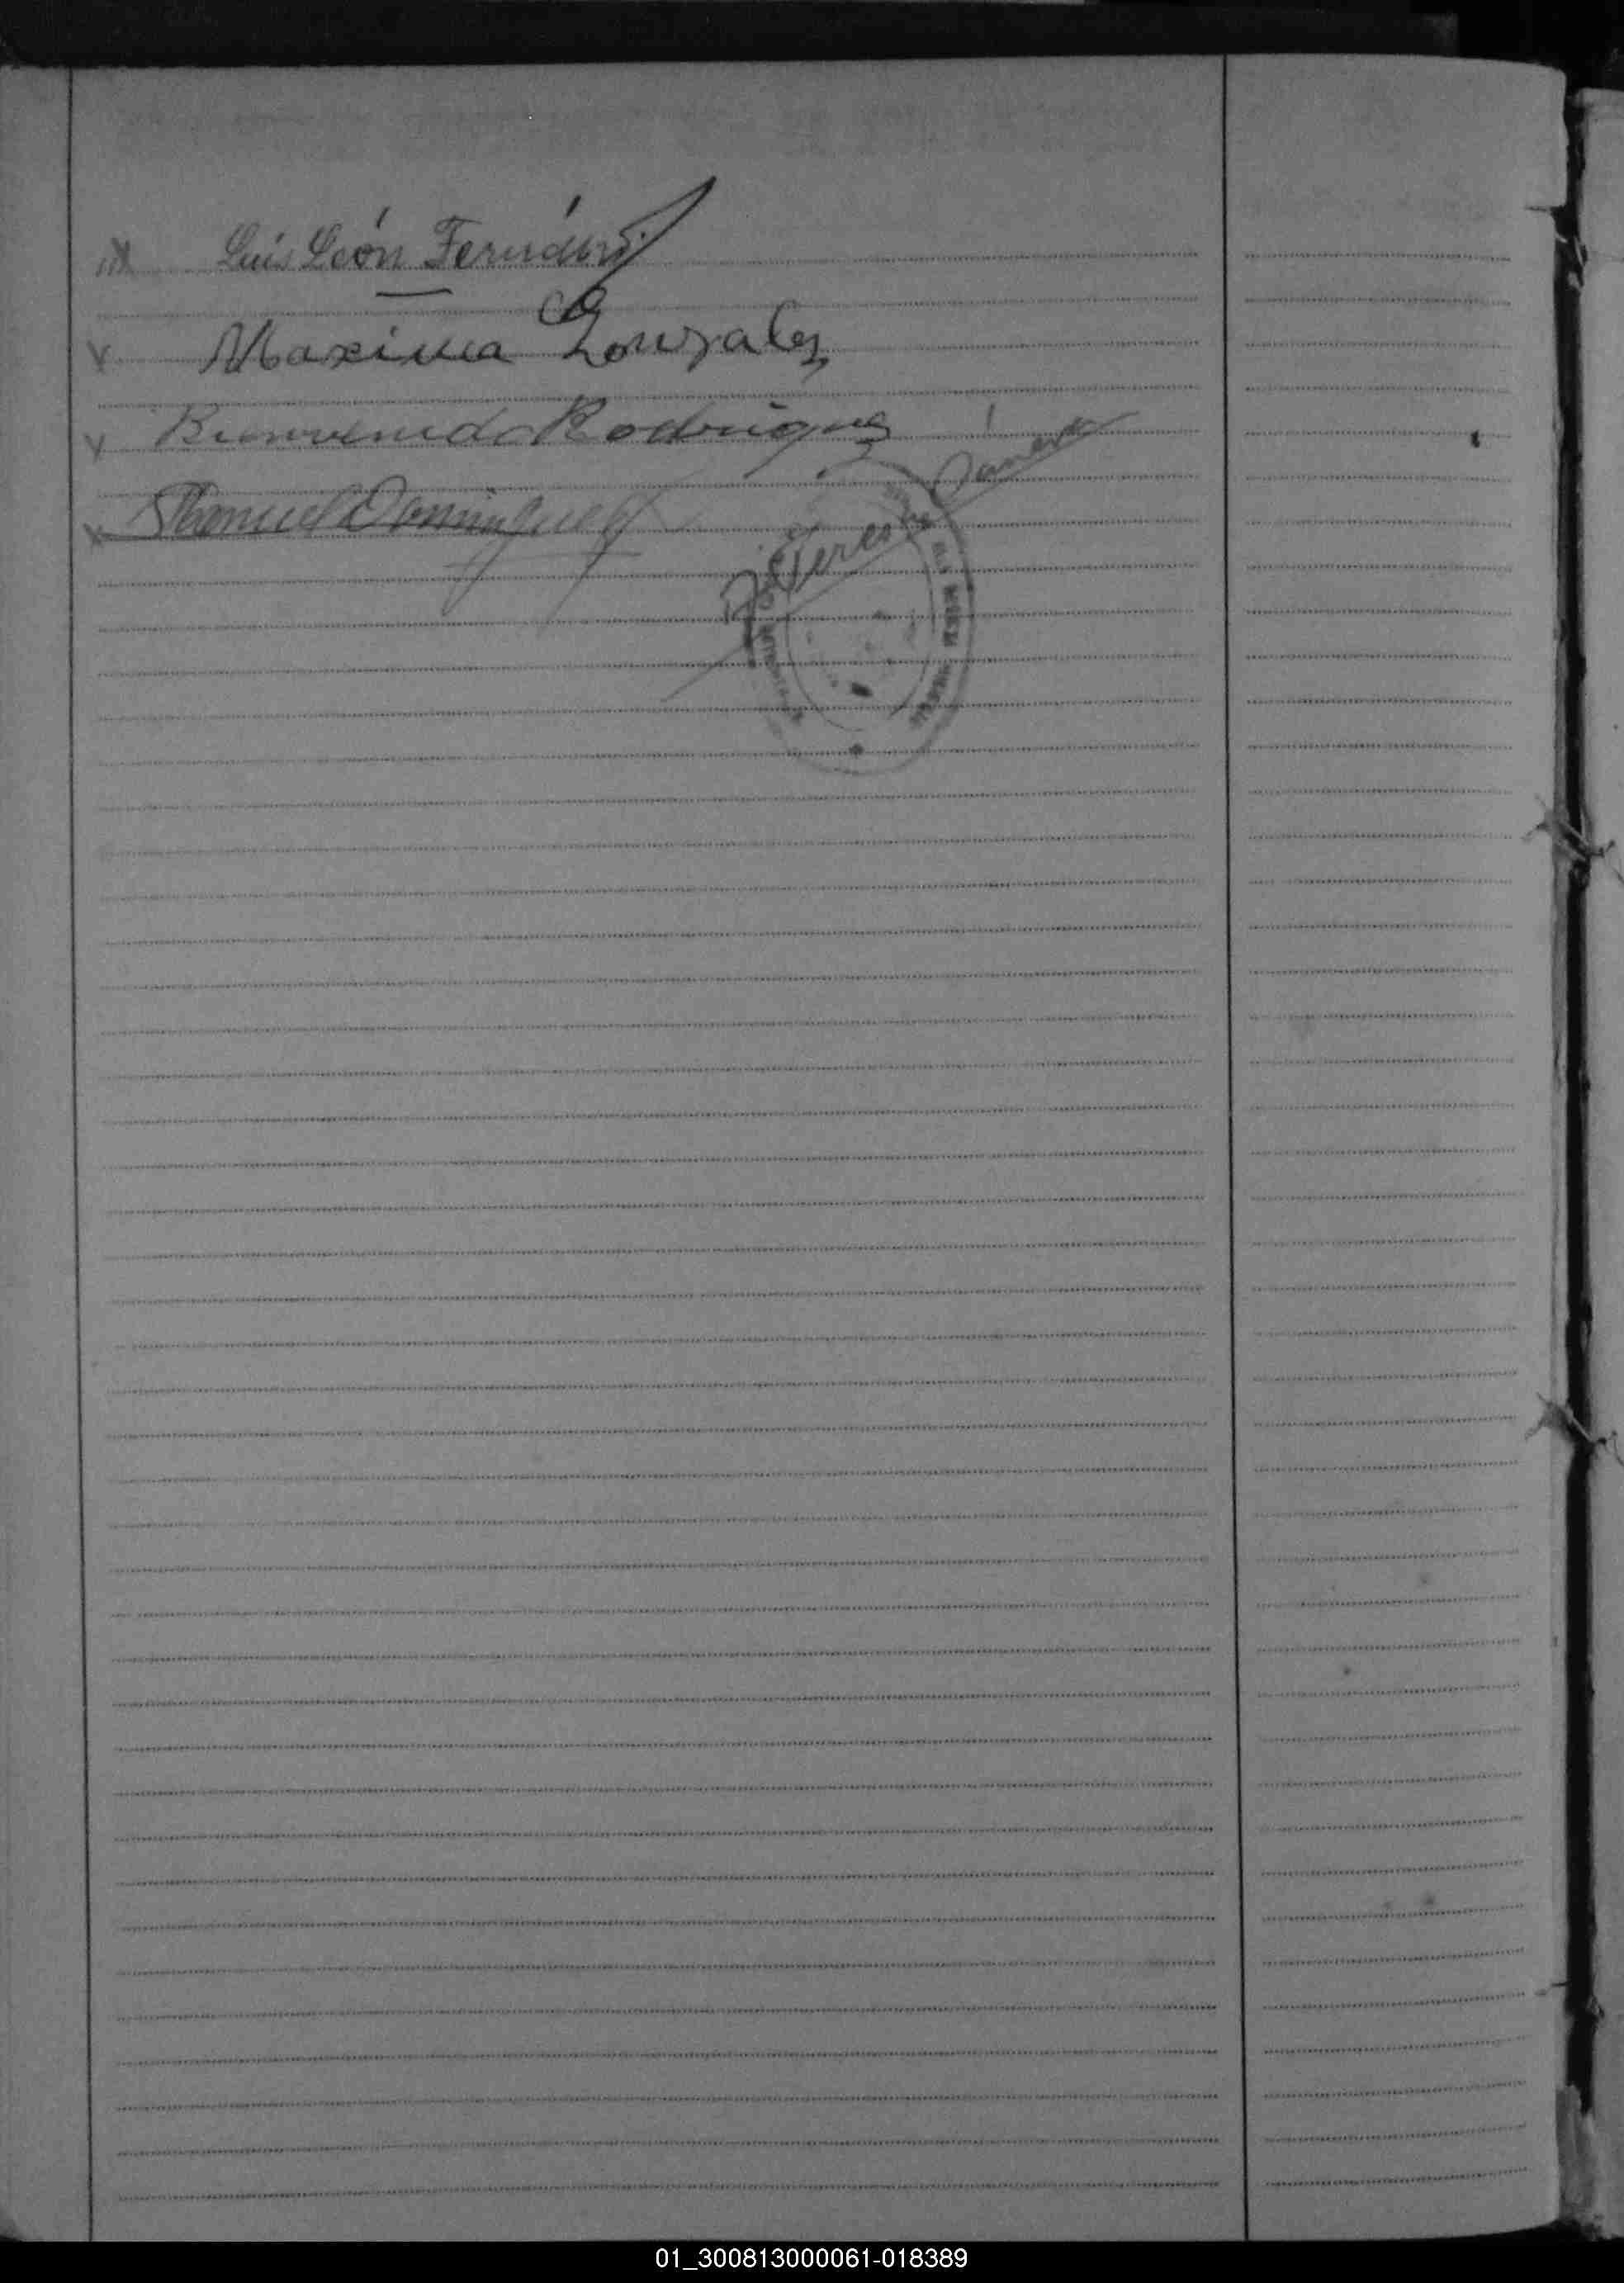 Luis León Fernández
Maxima Gonzales
Bienvenido Rodriguez
Manuel Dominguez
01_300813000061-018389